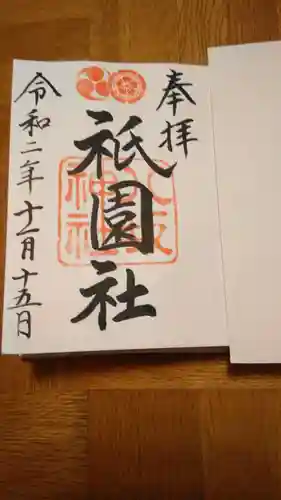 奉拝
祇園社
八坂神社
令和二年十一月十五日